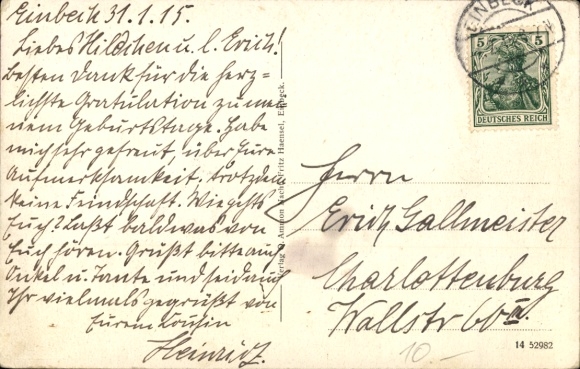 Einbeck 31.1.15.
Liebes Hildchen u. l. Erich!
Besten Dank für die herz=
lichste Gratulation zu mei
nem Geburtstage. Habe
mich sehr gefreut, über Eure
Aufmerksamkeit. Trotzdem
keine Feindschaft. Wie gehts
Euch? Laßt bald was von
Euch hören. Grüßt bitte auch
Onkel u. Tante und seid auch
Ihr vielmals gegrüßt von
Eurem Cousin
Heinrich.
Verlag Fritz Haensel, Einbeck.
EINBECK
5 5
DEUTSCHES REICH
Herrn
Erich Gallmeister
Charlottenburg
Wallstr 60 III.
14 52982
10.-